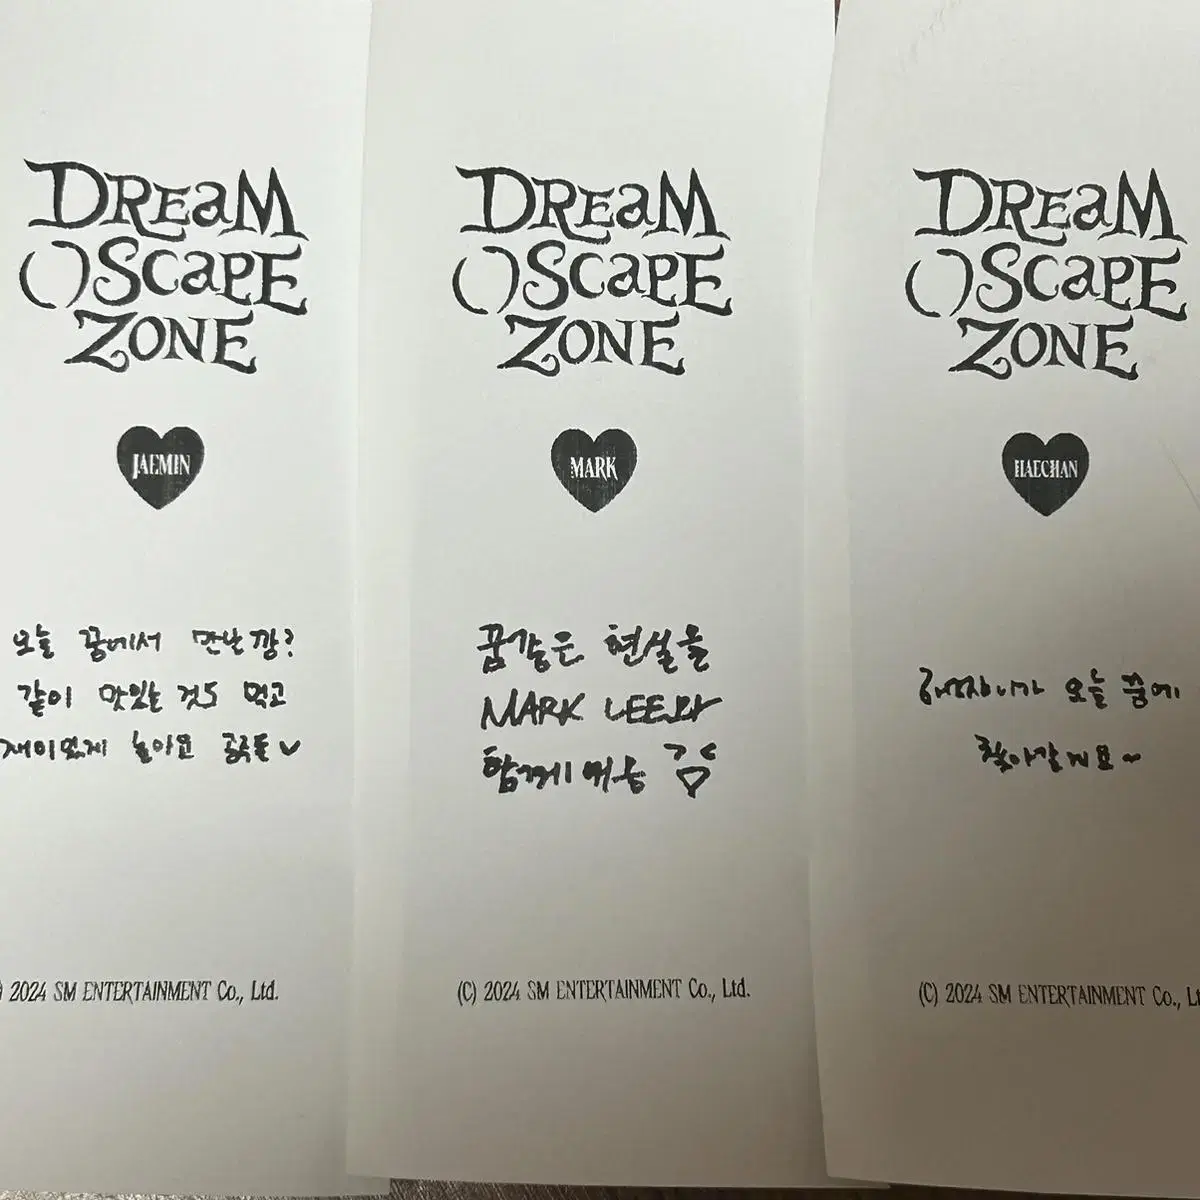 DREAM
( )SCAPE
ZONE
JAEMIN
오늘 꿈에서 만난깡?
같이 맛있는 것도 먹고
재미있게 놀아요 공주들♡
) 2024 SM ENTERTAINMENT Co., Ltd.
DREAM
( )SCAPE
ZONE
MARK
꿈같은 현실을
MARK LEE와
함께
(C) 2024 SM ENTERTAINMENT Co., Ltd.
DREAM
( )SCAPE
ZONE
HAECHAN
오늘 꿈에
찾아갈게요~
(C) 2024 SM ENTERTAINMENT Co., Lt